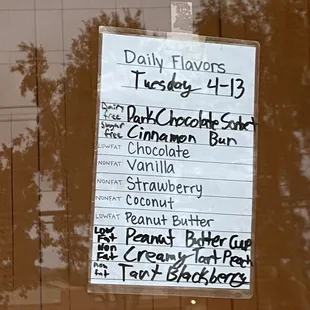 Daily Flavors
Tuesday 4-13
Dairy free Dark Chocolate Sorbet
Sugar free Cinnamon Bun
LOWFAT Chocolate
NONFAT Vanilla
NONFAT Strawberry
NONFAT Coconut
LOWFAT Peanut Butter
Low Fat Peanut Butter Cup
Non Fat Creamy Tart Peach
Non fat Tart Blackberry